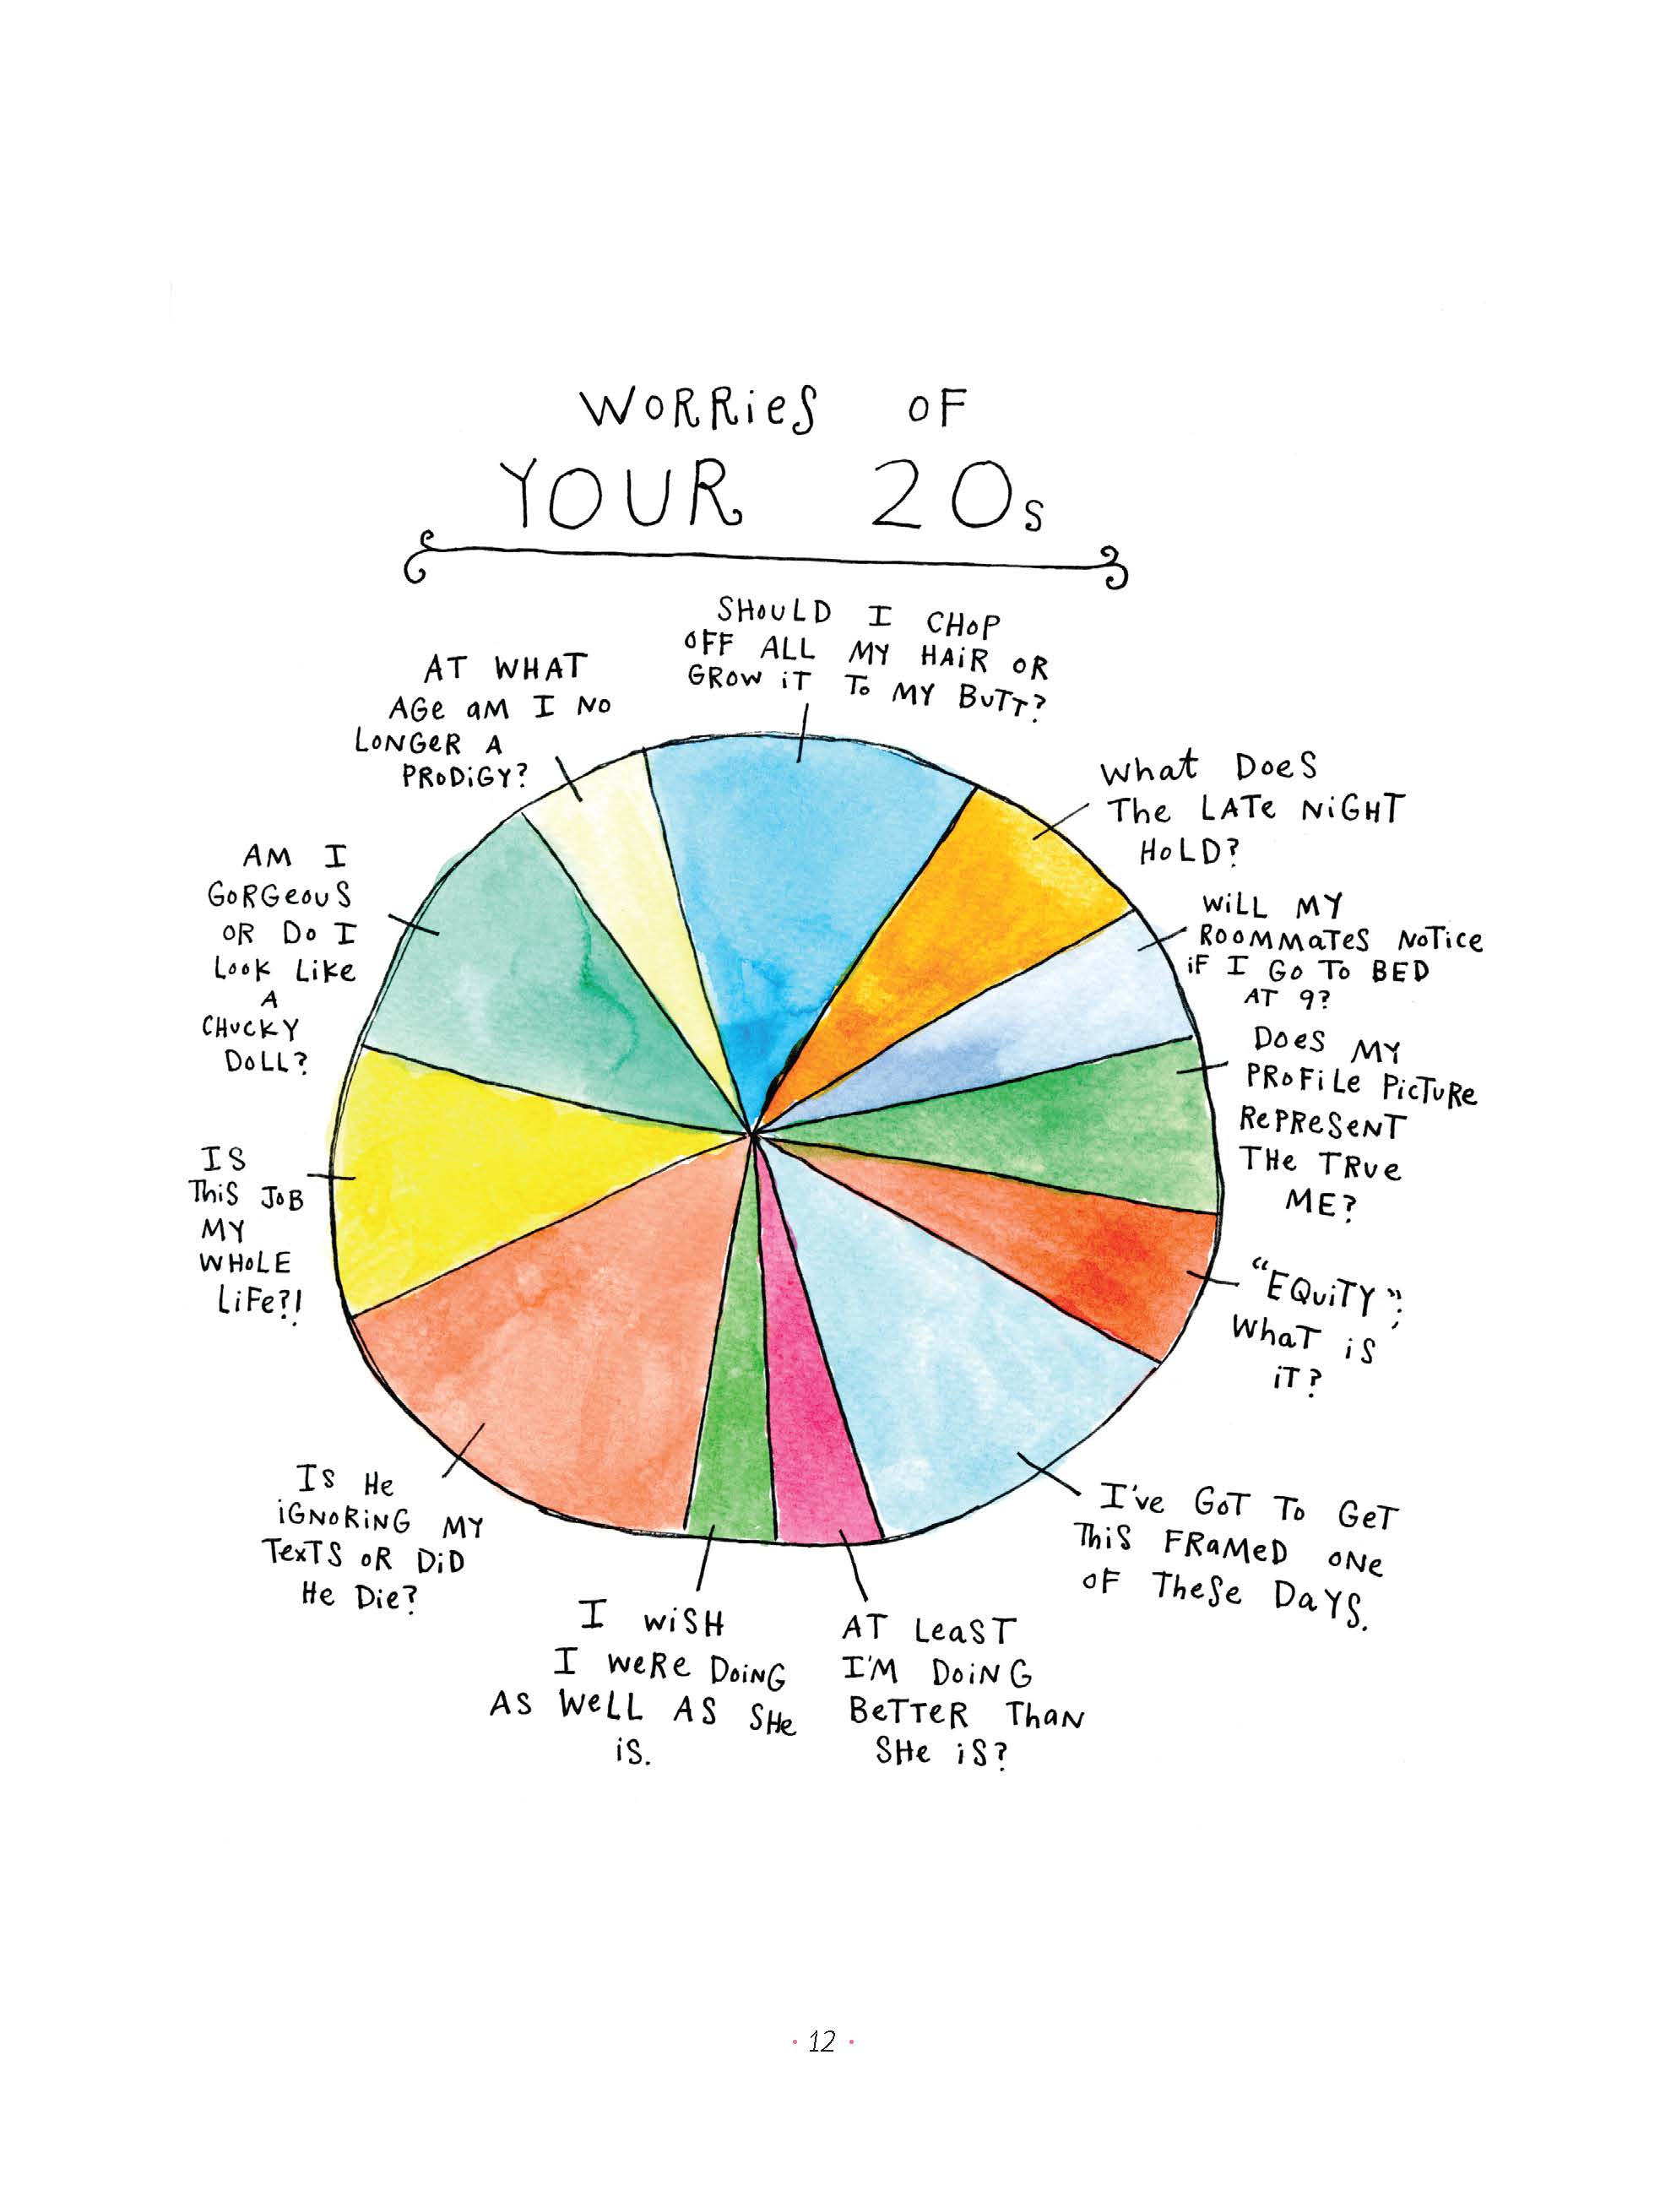 WORRieS OF
YOUR 20s
SHOULD I CHOP
OFF ALL MY HAiR OR
GROW iT To MY BUTT?
AT WHAT
AGe aM I No
LONGeR A
PRODiGY?
What DoeS
The LATe NiGHT
HoLD?
AM I
GoRGeouS
OR Do I
Look Like
A
CHUCKY
DoLL?
WiLL MY
RooMMaTeS NoTice
iF I Go To BED
AT 9?
Does MY
PRoFiLe PicTuRe
RePReSeNT
THe TRue
ME?
IS
ThiS JoB
MY
WHoLE
LiFe?!
"EQuiTY":
WhaT iS
iT?
Is He
iGNoRiNG MY
TexTS oR DiD
He Die?
I've GoT To GeT
ThiS FRaMeD oNe
oF TheSe DaYS.
I wiSH
I weRe DoiNG
AS WeLL AS SHe
iS.
AT LeaST
I'M DoiNG
BeTTeR ThaN
SHe iS?
· 12 ·